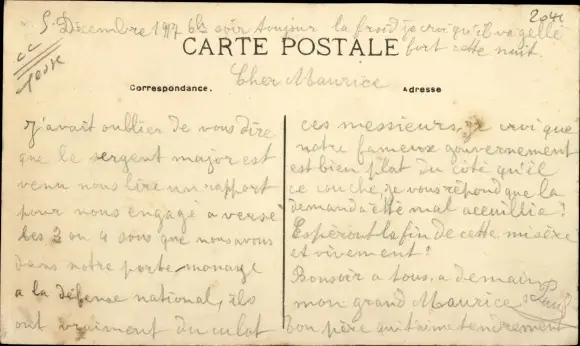 5 Décembre 1917 6h soir toujour la froid je croi qu'il va gelle
fort cette nuit.
CARTE POSTALE
Cher Maurice
Correspondance.
Adresse
J'avait oublier de vous dire
que le sergent major est
venu nous lire un rapport
pour nous engagé a versé
les 3 ou 4 sous que nous avons
dans notre porte-monaye
a la défense national, ils
ont vraiment du culot
ces messieurs, je croi que
notre fameux gouvernement
est bien plat du coté qu'el
ce couche, je vous répond que la
demand a étté mal acceuillia!
Espéront la fin de cette misère
et vivement!
Bonsoir a tous, a demain
mon grand Maurice
bon père qui t'aime tendrement